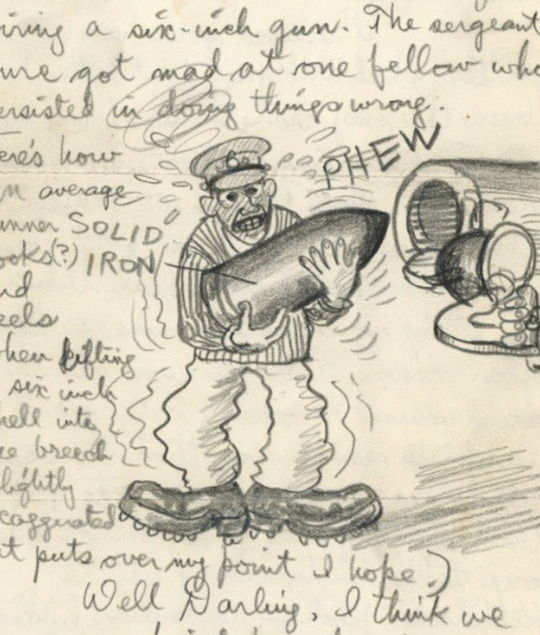 iring a six-inch gun. The sergeant
ure got mad at one fellow who
ersisted in doing things wrong.
PHEW
ere's how
n average
unner
SOLID
IRON
ooks(?)
nd
eels
when lifting
six inch
hell into
he breech
lightly
exaggerated
t puts over my point I hope.)
Well Darling, I think we